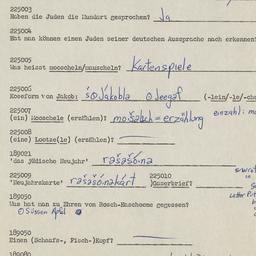 225003
Haben die Juden die Hundert gesprochen? Ja
225004
Hat man können einen Juden seiner deutschen Aussprache nach erkennen
225005
Was heisst mooscheln/muuscheln? Kartenspiele
225005
Koseform von Jakob: šǫ Jākobla (-lein/-le/-che
225007
(ein) Mooschele (erzählen)? = erzählung einzahl:
225008
(eine) Lootze(le) (erzählen)?
189021
'das jüdische Neujahr' rašašōna
225009 225010
'Neujahrskarte' rašašōnakart )Gaserbrief?
189050
Was hat man zu Ihren von Rosch-Haschoome gegessen?
süssen Apfel
189050
Einen (Schaafs-, Fisch-)Kopf?
189080